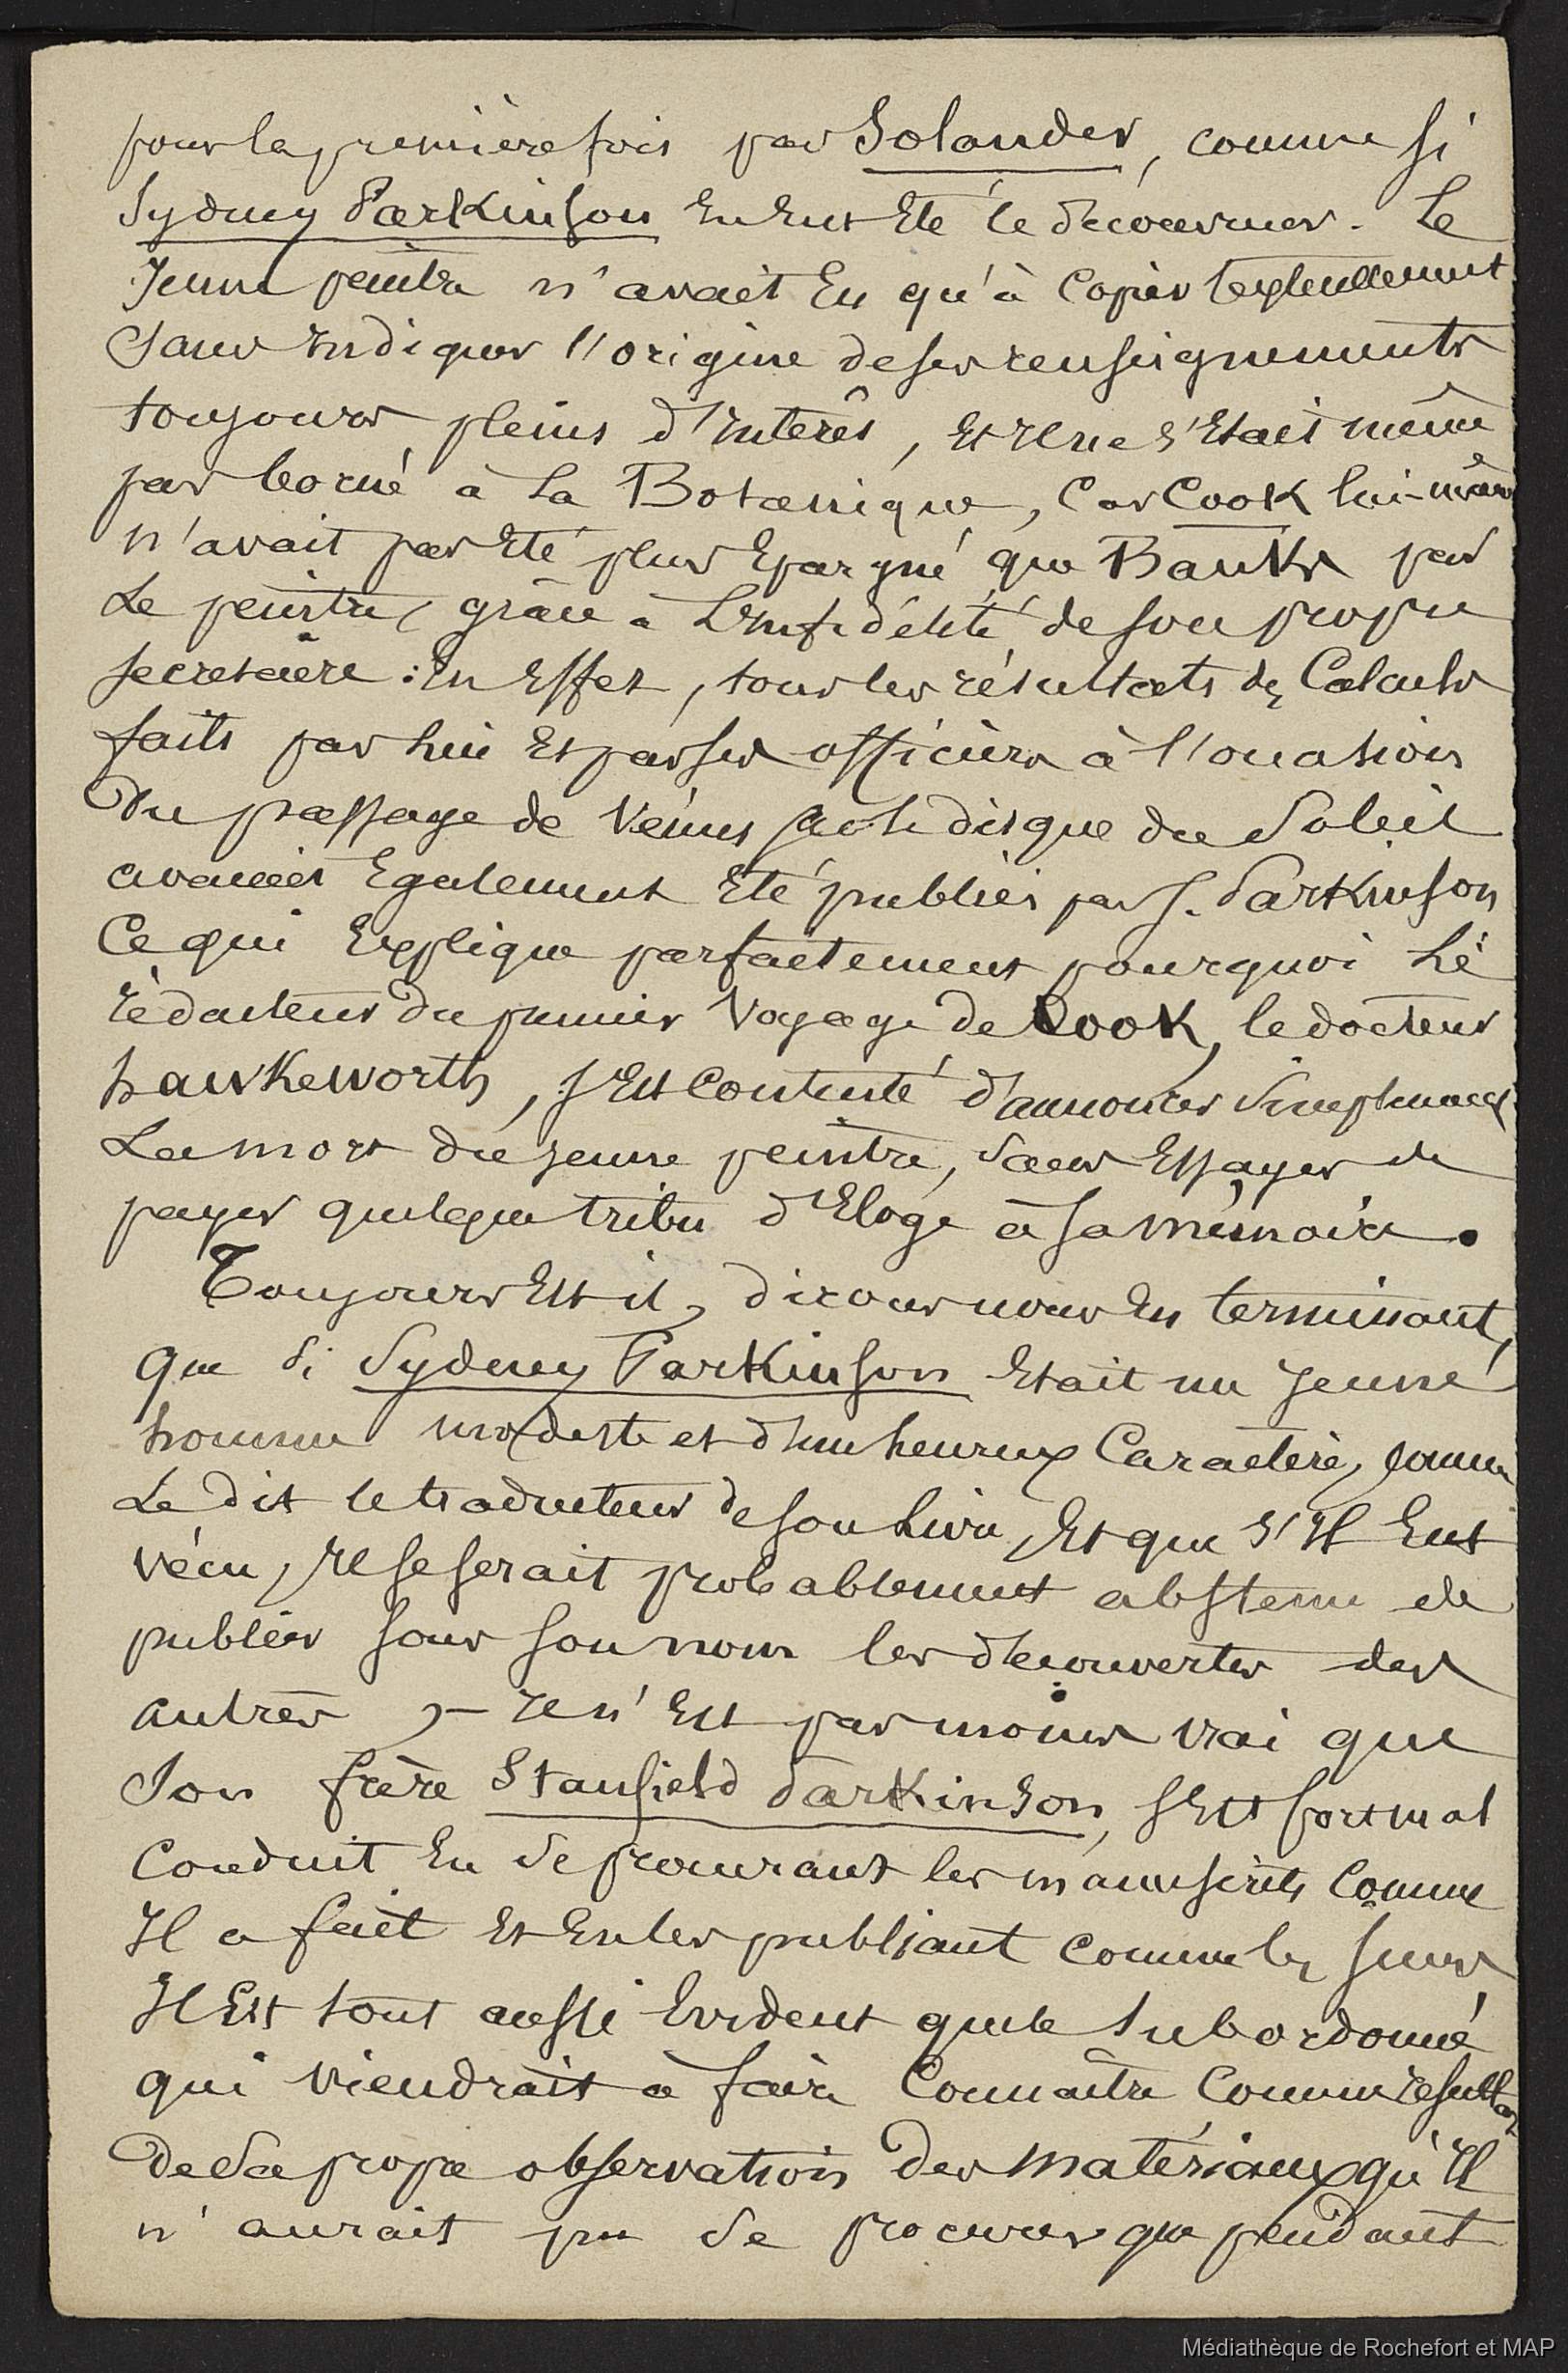 pour la première fois par Solander, comme si
Sydney Parkinson en eut été le découvreur. Le
Jeune peintre n'avait eu qu'à copier textuellement
Sans indiquer l'origine de ses renseignements
toujours pleins d'interêt, et il ne s'était même
pas borné à la Botanique, Car Cook lui-même
n'avait pas été plus épargné que Banks par
Le peintre, grâce à l'infidélité de son propre
secretaire : en effet, tous les résultats de Calculs
faits par lui et par ses officiers à l'occasion
Du passage de Vénus sur le disque du Soleil
avaient également été publiés par S. Parkinson
Ce qui explique parfaitement pourquoi le
rédacteur du premier Voyage de Cook, le docteur
hawkeworth, s'est contenté d'annoncer simplement
La mort du jeune peintre, sans essayer de
payer quelque tribu d'éloge à sa mémoire.
Toujours est il, dirons nous en terminant,
que si Sydney Parkinson était un jeune
homme modeste et d'un heureux Caractère, comme
Le dit le traducteur de son livre, et que s'il eut
vécu, il se serait probablement abstenu de
publier sous son nom les découvertes des
autres, - il n'est pas moins vrai que
Son frère Stanfield Parkinson, s'est fort mal
Conduit en se procurant les manuscrits comme
Il a fait et en les publiant comme les siens
Il est tout aussi évident que le subordonné
qui viendrait à faire Connaître comme résultat
De sa propre observation des matériaux qu'il
n'aurait pu se procurer que pendant
Médiathèque de Rochefort et MAP